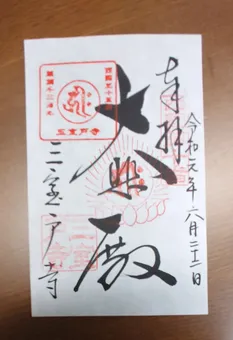 奉拝
令和元年六月二十二日
大悲殿
三室戸寺
西國第十番
三室戸寺